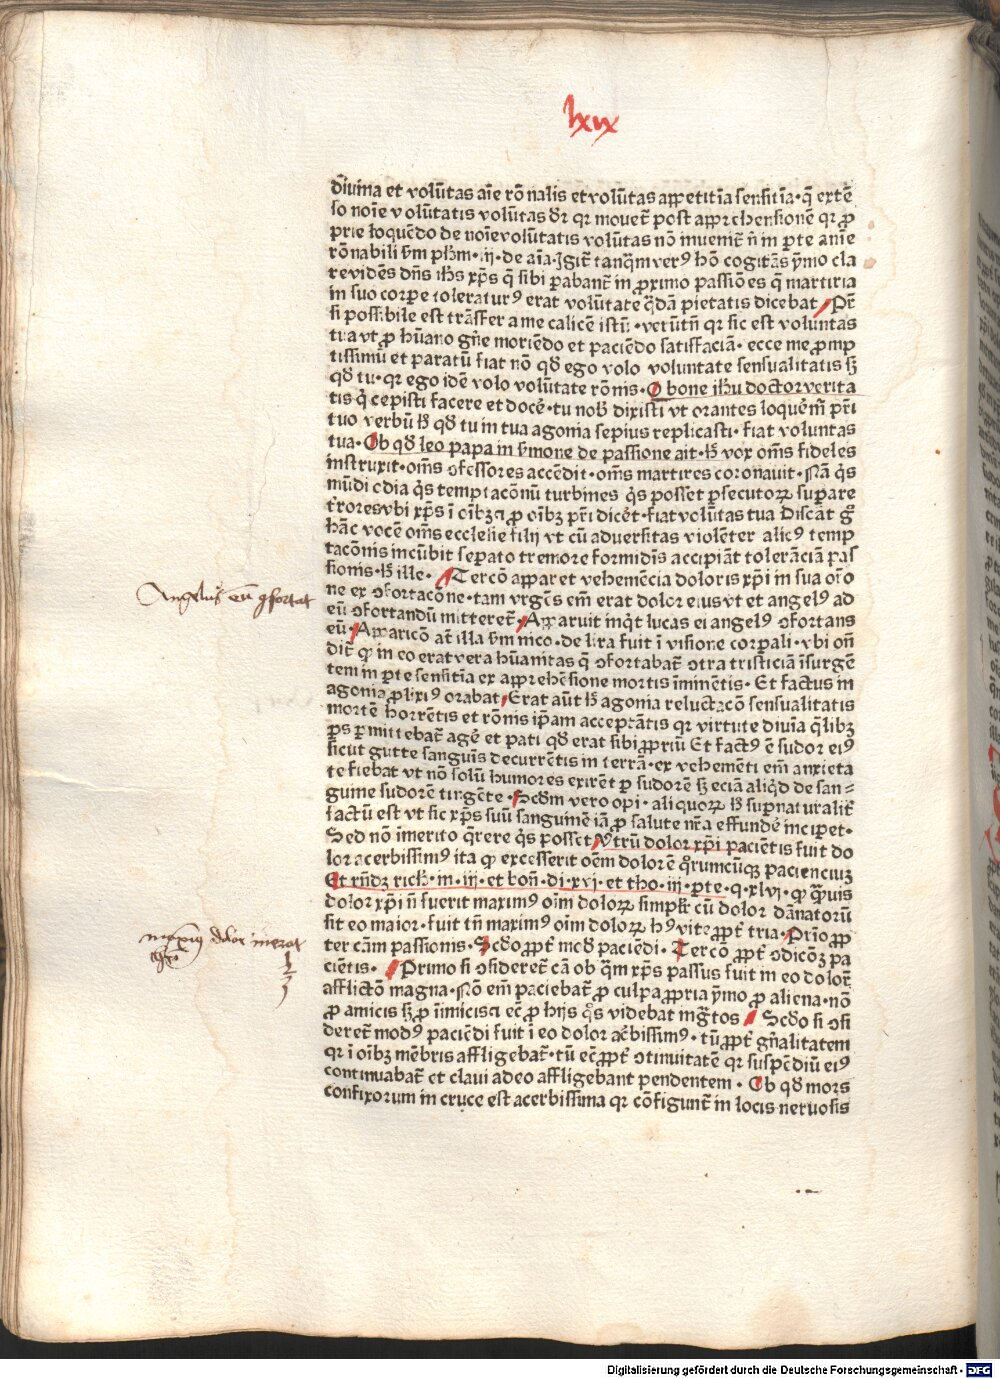 lxix
diuina et volūtas aīe rōnalis et volūtas appetitīa sensitīa · q̄ extē
so noīe volūtatis volūtas dr̄ qr mouet̄ post apprehensionē qr ꝓ
prie loquēdo de noīe volūtatis volūtas nō inuenit̄ n̄ in ꝑte anīe
rōnabili s̄m ph̄m · iij · de aīa · Igit̄ tanq̄m verꝰ hō cogitās ymo cla
re vidēs dn̄s ih̄s xp̄s q̄ sibi ꝑabant̄ in ꝓximo passiōes q̄ martiria
in suo corpe toleraturꝰ erat volūtate q̄dā pietatis dicebat / Pr̄
si possibile est trāsfer a me calicē istū · verūtn̄ qr sic est voluntas
tua vt ꝓ hūano gn̄e moriēdo et paciēdo satisfaciā · ecce me ꝓmp
tissimū et paratū fiat nō qd̄ ego volo voluntate sensualitatis sꝫ
qd̄ tu · qr ego idē volo volūtate rōnis · O bone ih̄u doctor verita
tis q̄ cepisti facere et docē · tu nob̄ dixisti vt orantes loquem̄ pr̄i
tuo verbū h̄ qd̄ tu in tua agonia sepius replicasti · fiat voluntas
tua · Ob qd̄ leo papa in s̄mone de passione ait · h̄ vox om̄s fideles
instruxit · om̄s ꝯfessores accēdit · om̄s martires coronauit · Nā q̇s
mūdi odia q̇s temptacōnū turbines q̇s posset ꝑsecutorꝝ suꝑare
t̄rores vbi xp̄s ī oībꝫ ꝛ ꝓ oībꝫ pr̄i dicēt · fiat volūtas tua Discāt g̊
hāc vocē om̄s ecclesie filij vt cū aduersitas violēter alicꝰ temp
tacōnis incūbit seꝑato tremore formidīs accipiāt tolerāciā pas
sionis · h̄ ille · Tercō apparet vehemēcia doloris xp̄i in sua oro
Angelus eū ꝯfortat
ne ex ꝯfortacōne · tam vrgēs em̄ erat dolor eius vt et angelꝰ ad
eū ꝯfortandū mitteret̄ · Apparuit inq̇t lucas ei angelꝰ ꝯfortans
eū · Apparicō at̄ illa s̄m nico · de lira fuit ī visione corꝑali · vbi on̄
dit̄ ꝙ in eo erat vera hūanitas q̄ ꝯfortabat̄ ꝯtra tristiciā īsurgē
tem in ꝑte sensitīa ex apprehēsione mortis īminētis · Et factus in
agonia ꝓlixiꝰ orabat · Erat aūt h̄ agonia reluctacō sensualitatis
mortē horrētis et rōnis ip̄am acceptātis qr virtute diuīa q̄libꝫ
ꝑs ꝑmittebat̄ agē et pati qd̄ erat sibi ꝓpriū Et factꝰ ē sudor eiꝰ
sicut gutte sanguīs decurrētis in terrā · ex vehemēti em̄ anxieta
te fiebat vt nō solū humores exirēt ꝑ sudorē sꝫ eciā aliq̇d de san=
guine sudorē tingēte · Scd̄m vero opi · aliquorꝝ h̄ suꝑnaturalit̄
factū est vt sic xp̄s suū sanguinē iā ꝓ salute nr̄a effundē inciꝑet ·
Sed nō īmerito q̄rere q̇s posset / Vtrū dolor xp̄i paciētis fuit do
lor acerbissimꝰ ita ꝙ excesserit oēm dolorē q̊rumcūqꝫ pacienciuꝫ
Et rn̄dꝫ rich · in · iij · et bon̄ · di · xvj · et tho · iij · ꝑte · q · xlvj · ꝙ q̄uis
dolor xp̄i n̄ fuerit maximꝰ oīm dolorꝝ simplr̄ cū dolor dānatorū
maximꝰ dolor inerat
sit eo maior · fuit tn̄ maximꝰ oīm dolorꝝ hꝰ vite ꝓpt̄ tria · Prīo ꝓp
1
2
3
ter cām passionis · Scd̄o ꝓpt̄ mod̄ paciēdi · Tercō ꝓpt̄ ꝯdicōꝫ pa
ciētis · Primo si ꝯsideret̄ cā ob q̄m xp̄s passus fuit in eo dolor̄
afflictō magna · Nō em̄ paciebat̄ ꝓ culpa ꝓpria ymo ꝓ aliena · nō
ꝓ amicis sꝫ ꝓ īimicis ꝛ ec̄ ꝓ hijs q̊s videbat ingr̄tos / Scd̄o si ꝯsi
deret̄ modꝰ paciēdi fuit ī eo dolor ac̄bissimꝰ · tū ꝓpt̄ gn̄alitatem
qr ī oībꝫ mēbris affligebat̄ · tū ec̄ ꝓpt̄ ꝯtinuitatē qr suspēdiū eiꝰ
continuabat̄ et claui adeo affligebant pendentem · Ob qd̄ mors
confixorum in cruce est acerbissima qr cōfigunt̄ in locis neruosis
Digitalisierung gefördert durch die Deutsche Forschungsgemeinschaft - DFG